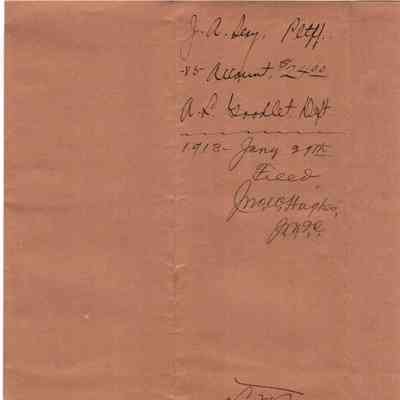 J. A. Levy, Pltff.
-vs- Account, $74.00
A. L. Goodlet, Deft
1918 - Jany 29th
Filed
Jno. C. Hughes,